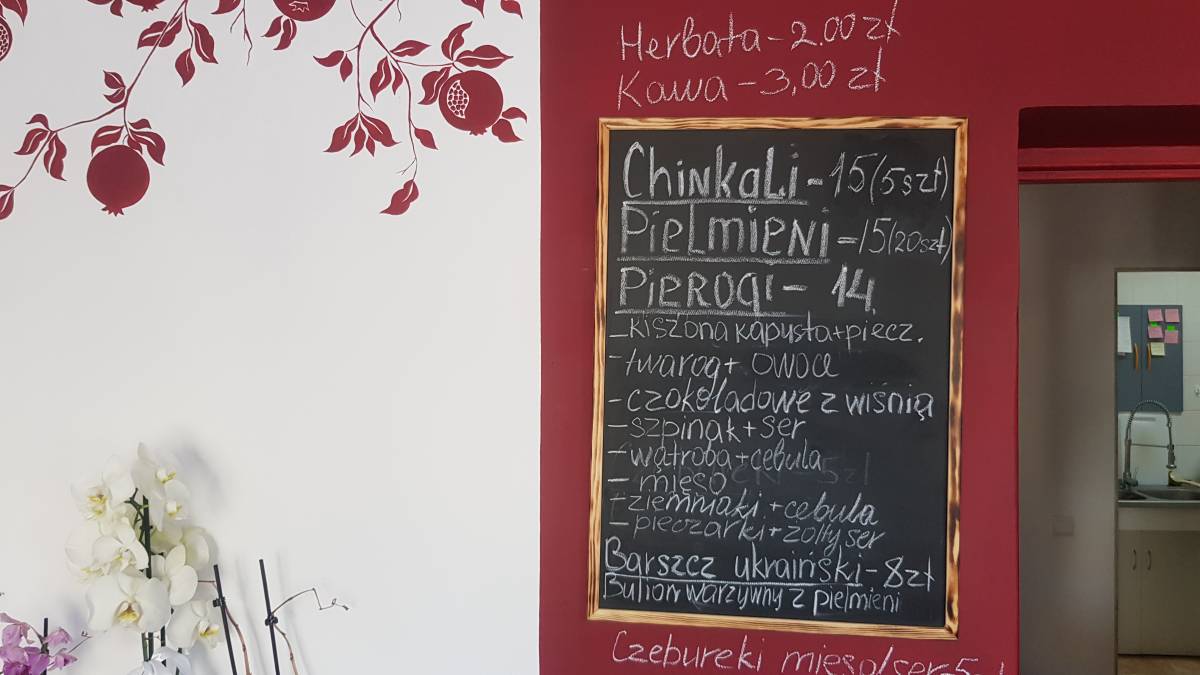 Herbata - 2.00 zł
Kawa - 3,00 zł
Chinkali - 15 (5 szt)
Pielmieni = 15 (20 szt)
Pierogi - 14
- kiszona kapusta + piecz.
- twarog + owoce
- czokoladowe z wiśnią
- szpinak + ser
- wątroba + cebula
- mięso
- ziemniaki + cebula
- pieczarki + żółty ser
Barszcz ukraiński - 8 zł
Bulion warzywny z pielmieni
Czebureki mięso/ser - 5